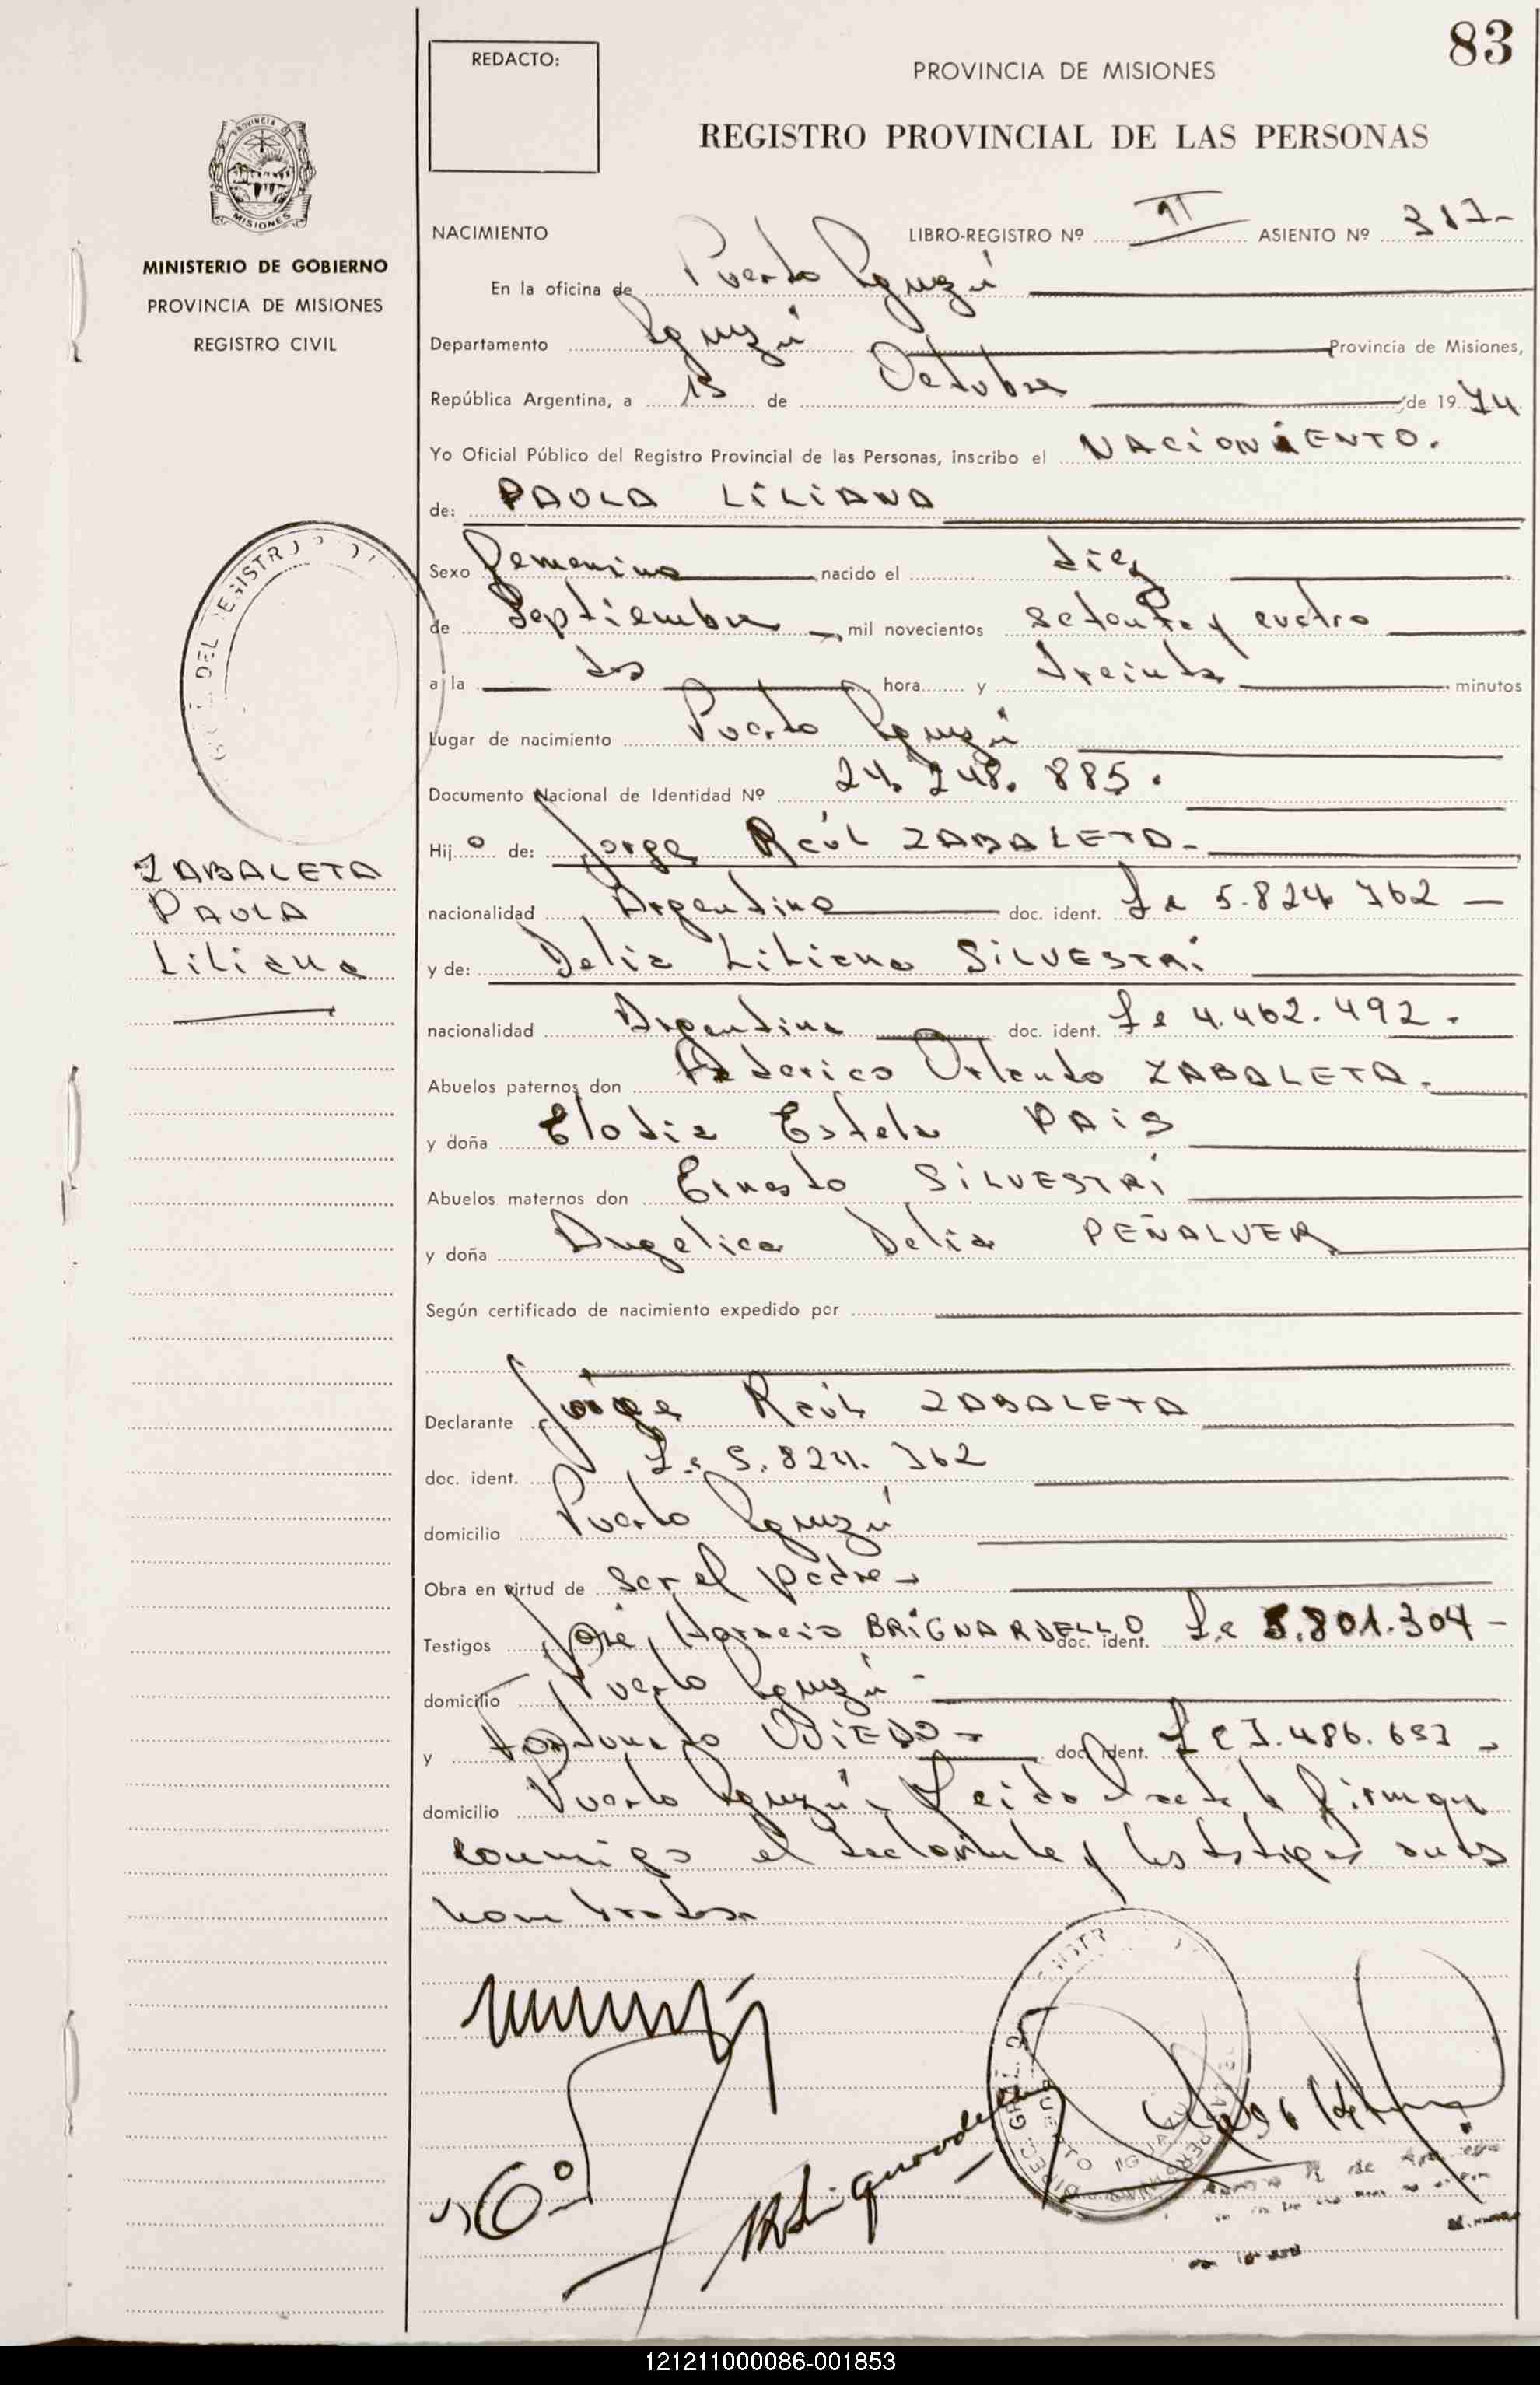 83
REDACTO:
PROVINCIA DE MISIONES
REGISTRO PROVINCIAL DE LAS PERSONAS
MISIONES
MINISTERIO DE GOBIERNO
PROVINCIA DE MISIONES
REGISTRO CIVIL
NACIMIENTO LIBRO-REGISTRO Nº II ASIENTO Nº 317-
En la oficina de Puerto Iguazú
Departamento Iguazú Provincia de Misiones,
República Argentina, a 15 de Octubre de 1974
Yo Oficial Público del Registro Provincial de las Personas, inscribo el NACIMIENTO.
de: PAULA LILIANA
Sexo Femenino nacido el diez
de Septiembre, mil novecientos setenta y cuatro
a la dos hora y treinta minutos
Lugar de nacimiento Puerto Iguazú
Documento Nacional de Identidad Nº 24.248.885.
Hijo de: Jorge Raúl ZABALETA.
ZABALETA
PAULA
Liliana
nacionalidad Argentino doc. ident. Le 5.824 362
y de: Delia Liliana SILVESTRI
nacionalidad Argentina doc. ident. 4.462.492.
Abuelos paternos don Federico Orlando ZABALETA.
y doña Elodia Estela PAIS
Abuelos maternos don Ernesto SILVESTRI
y doña Angelica Delia PEÑALVER
Según certificado de nacimiento expedido por
Declarante Jorge Raúl ZABALETA
doc. ident. Le 5.824.362
domicilio Puerto Iguazú
Obra en virtud de ser el padre
Testigos José Horacio BRIGNARDELLO doc. ident. Le 5.801.304-
domicilio Puerto Iguazú-
y Fortunato OVIEDO- doc. ident. Le 7.486.
domicilio Puerto Iguazú- Leida el acta la firman
conmigo el declarante y los testigos antes
nombrados
121211000086-001853